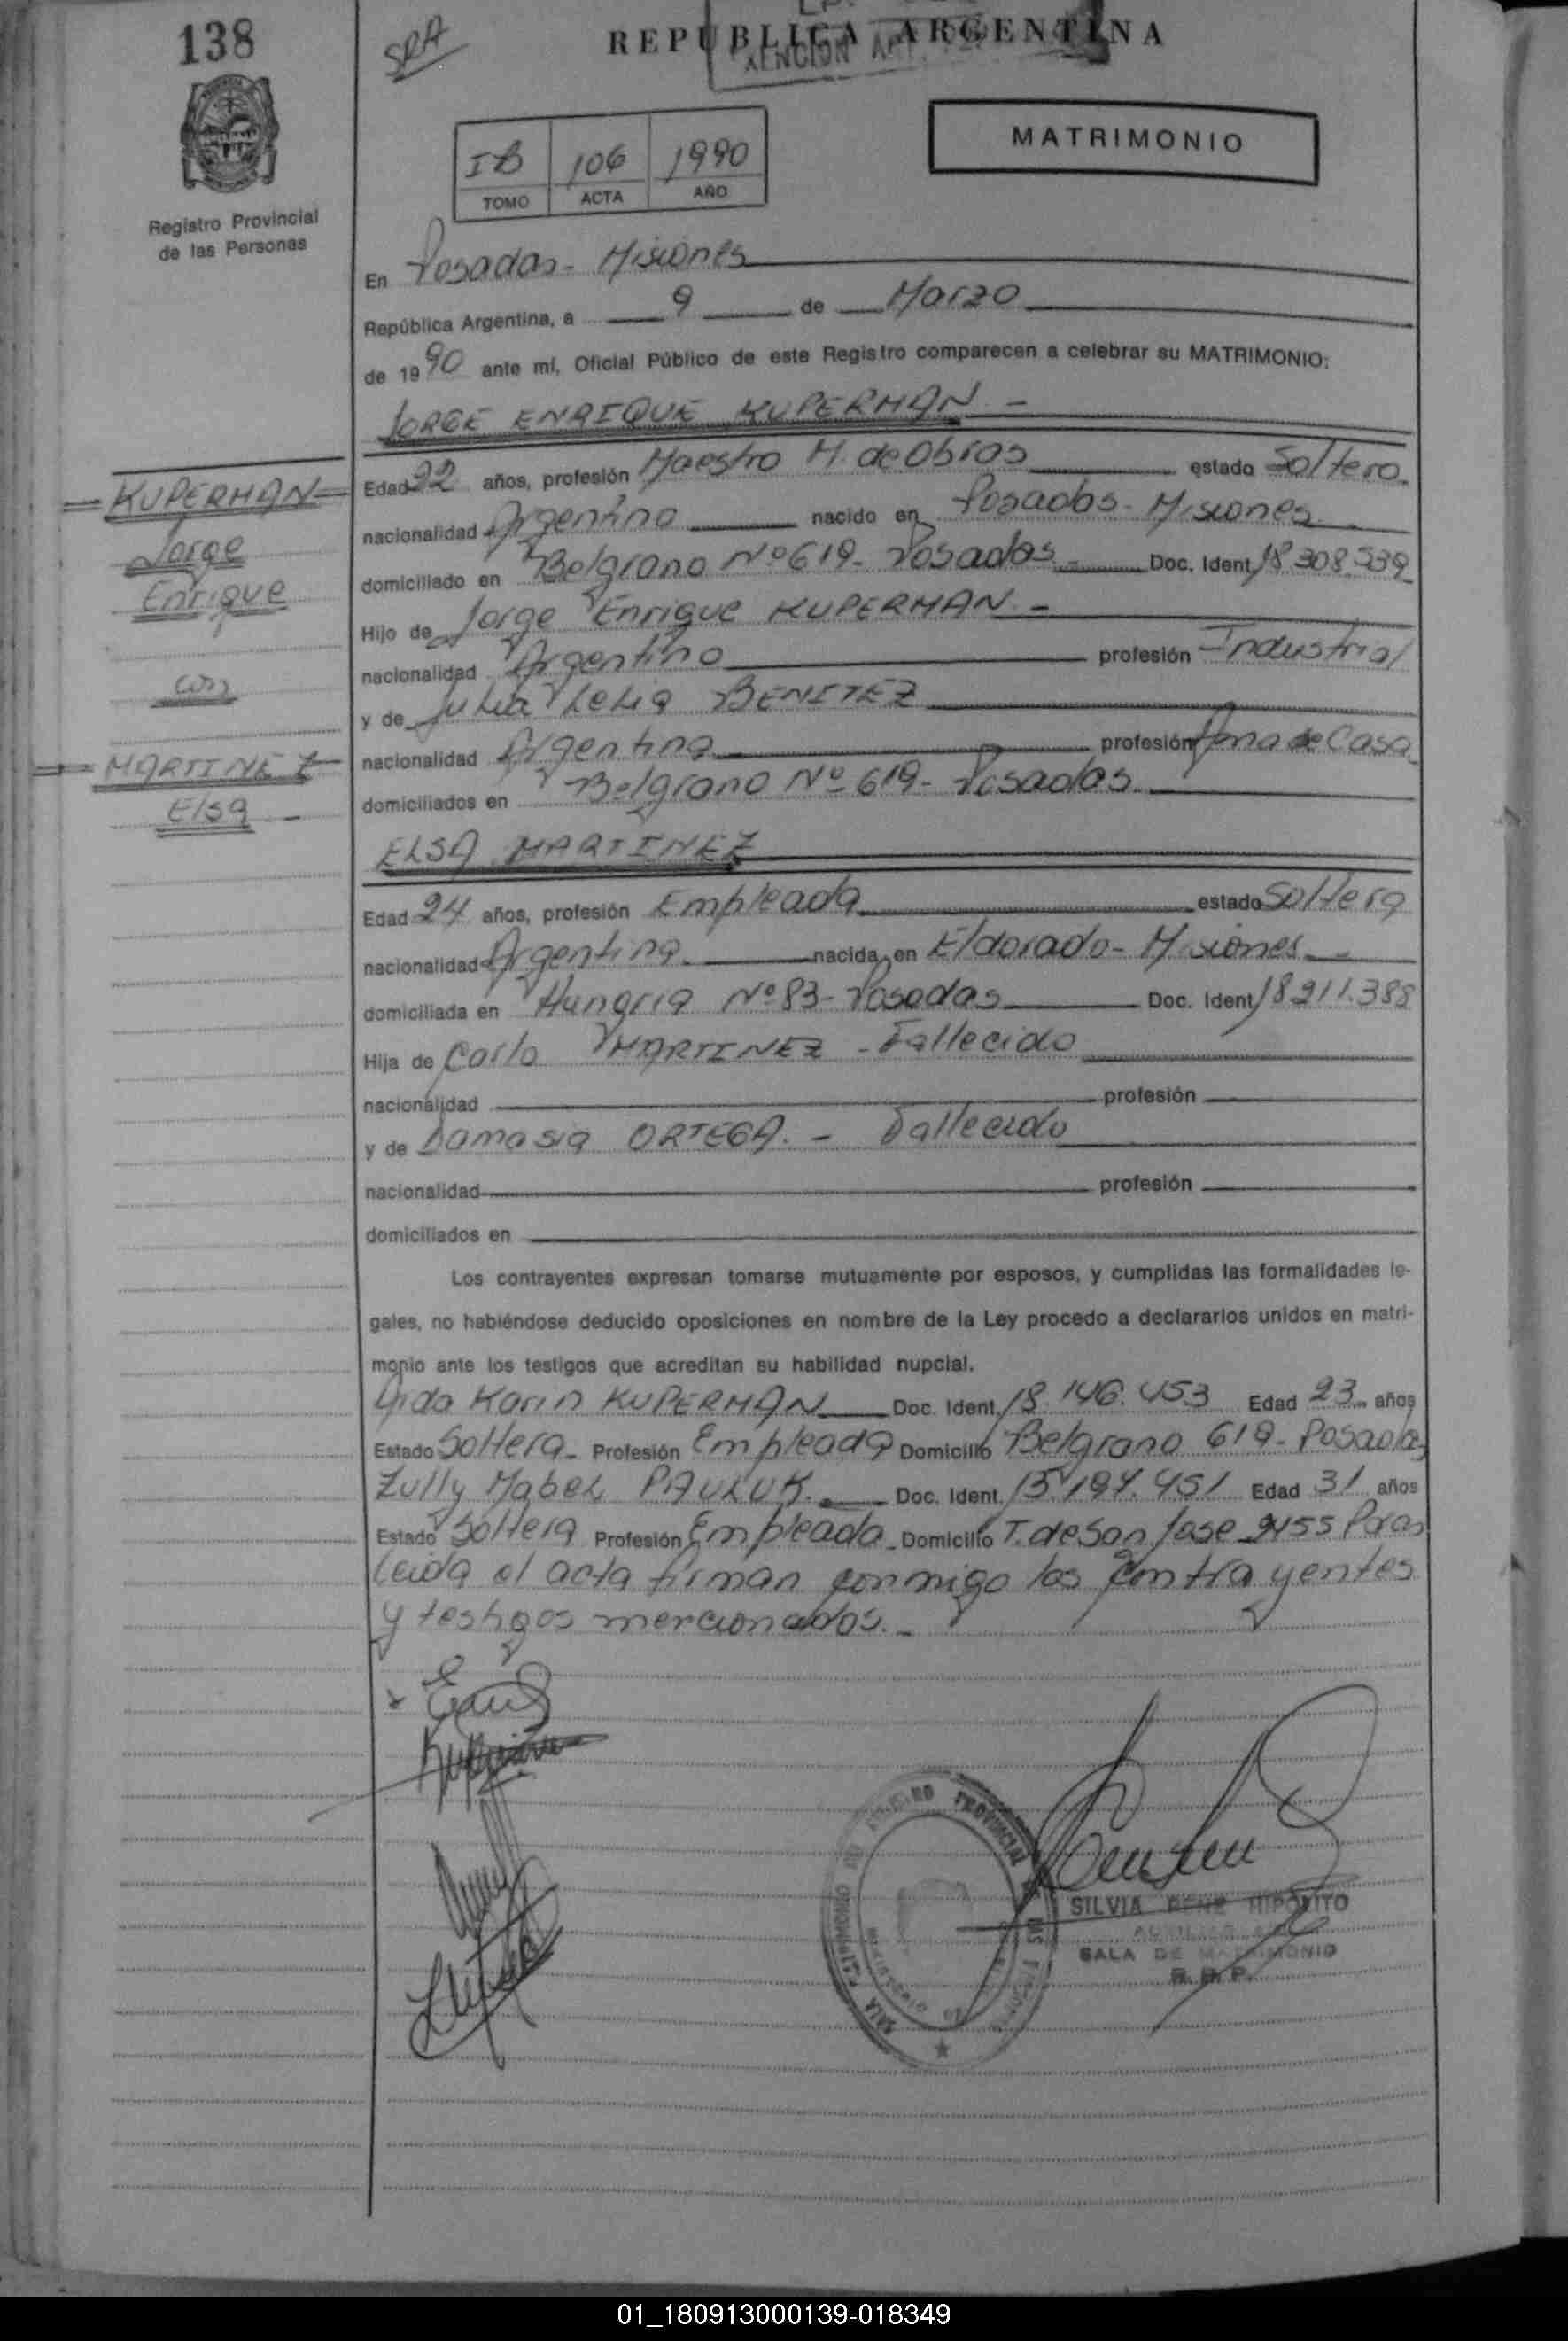 138
SRA
REPUBLICA ARGENTINA
MATRIMONIO
IB 106 1990
TOMO ACTA AÑO
Registro Provincial
de las Personas
En Posadas - Misiones
República Argentina, a 9 de Marzo
de 1990 ante mí, Oficial Público de este Registro comparecen a celebrar su MATRIMONIO:
JORGE ENRIQUE KUPERMAN. -
Edad 22 años, profesión Maestro M. de Obras estado Soltero.
nacionalidad Argentino nacido en Posadas - Misiones
domiciliado en Belgrano Nº 619 - Posadas Doc. Ident. 18.308.539
Hijo de Jorge Enrique KUPERMAN. -
nacionalidad Argentino profesión Industrial
y de Julia Lelia BENITEZ
nacionalidad Argentina profesión Ama de Casa
domiciliados en Belgrano Nº 619 - Posadas
KUPERMAN
Jorge
Enrique
con
MARTINEZ
Elsa
ELSA MARTINEZ
Edad 24 años, profesión Empleada estado Soltera
nacionalidad Argentina nacida en Eldorado - Misiones
domiciliada en Hungria Nº 83 - Posadas Doc. Ident. 18.211.388
Hija de Carlo MARTINEZ - Fallecido
nacionalidad profesión
y de Damasia ORTEGA. - Fallecido
nacionalidad profesión
domiciliados en
Los contrayentes expresan tomarse mutuamente por esposos, y cumplidas las formalidades le-
gales, no habiéndose deducido oposiciones en nombre de la Ley procedo a declararlos unidos en matri-
monio ante los testigos que acreditan su habilidad nupcial.
Aida Karin KUPERMAN Doc. Ident. 18.146.453 Edad 23 años
Estado Soltera - Profesión Empleada Domicilio Belgrano 619 - Posadas
Zully Mabel PAULUK. Doc. Ident. 15.197.451 Edad 31 años
Estado Soltera Profesión Empleada Domicilio T. de San Jose 2155 Pdas
Leida el acta firman conmigo los contrayentes
y testigos mencionados. -
SILVIA RENE HIPOLITO
SALA DE MATRIMONIO
R. P. P.
01_180913000139-018349